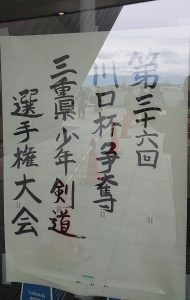 第三十六回
川口杯争奪
三重県少年剣道
選手権大会